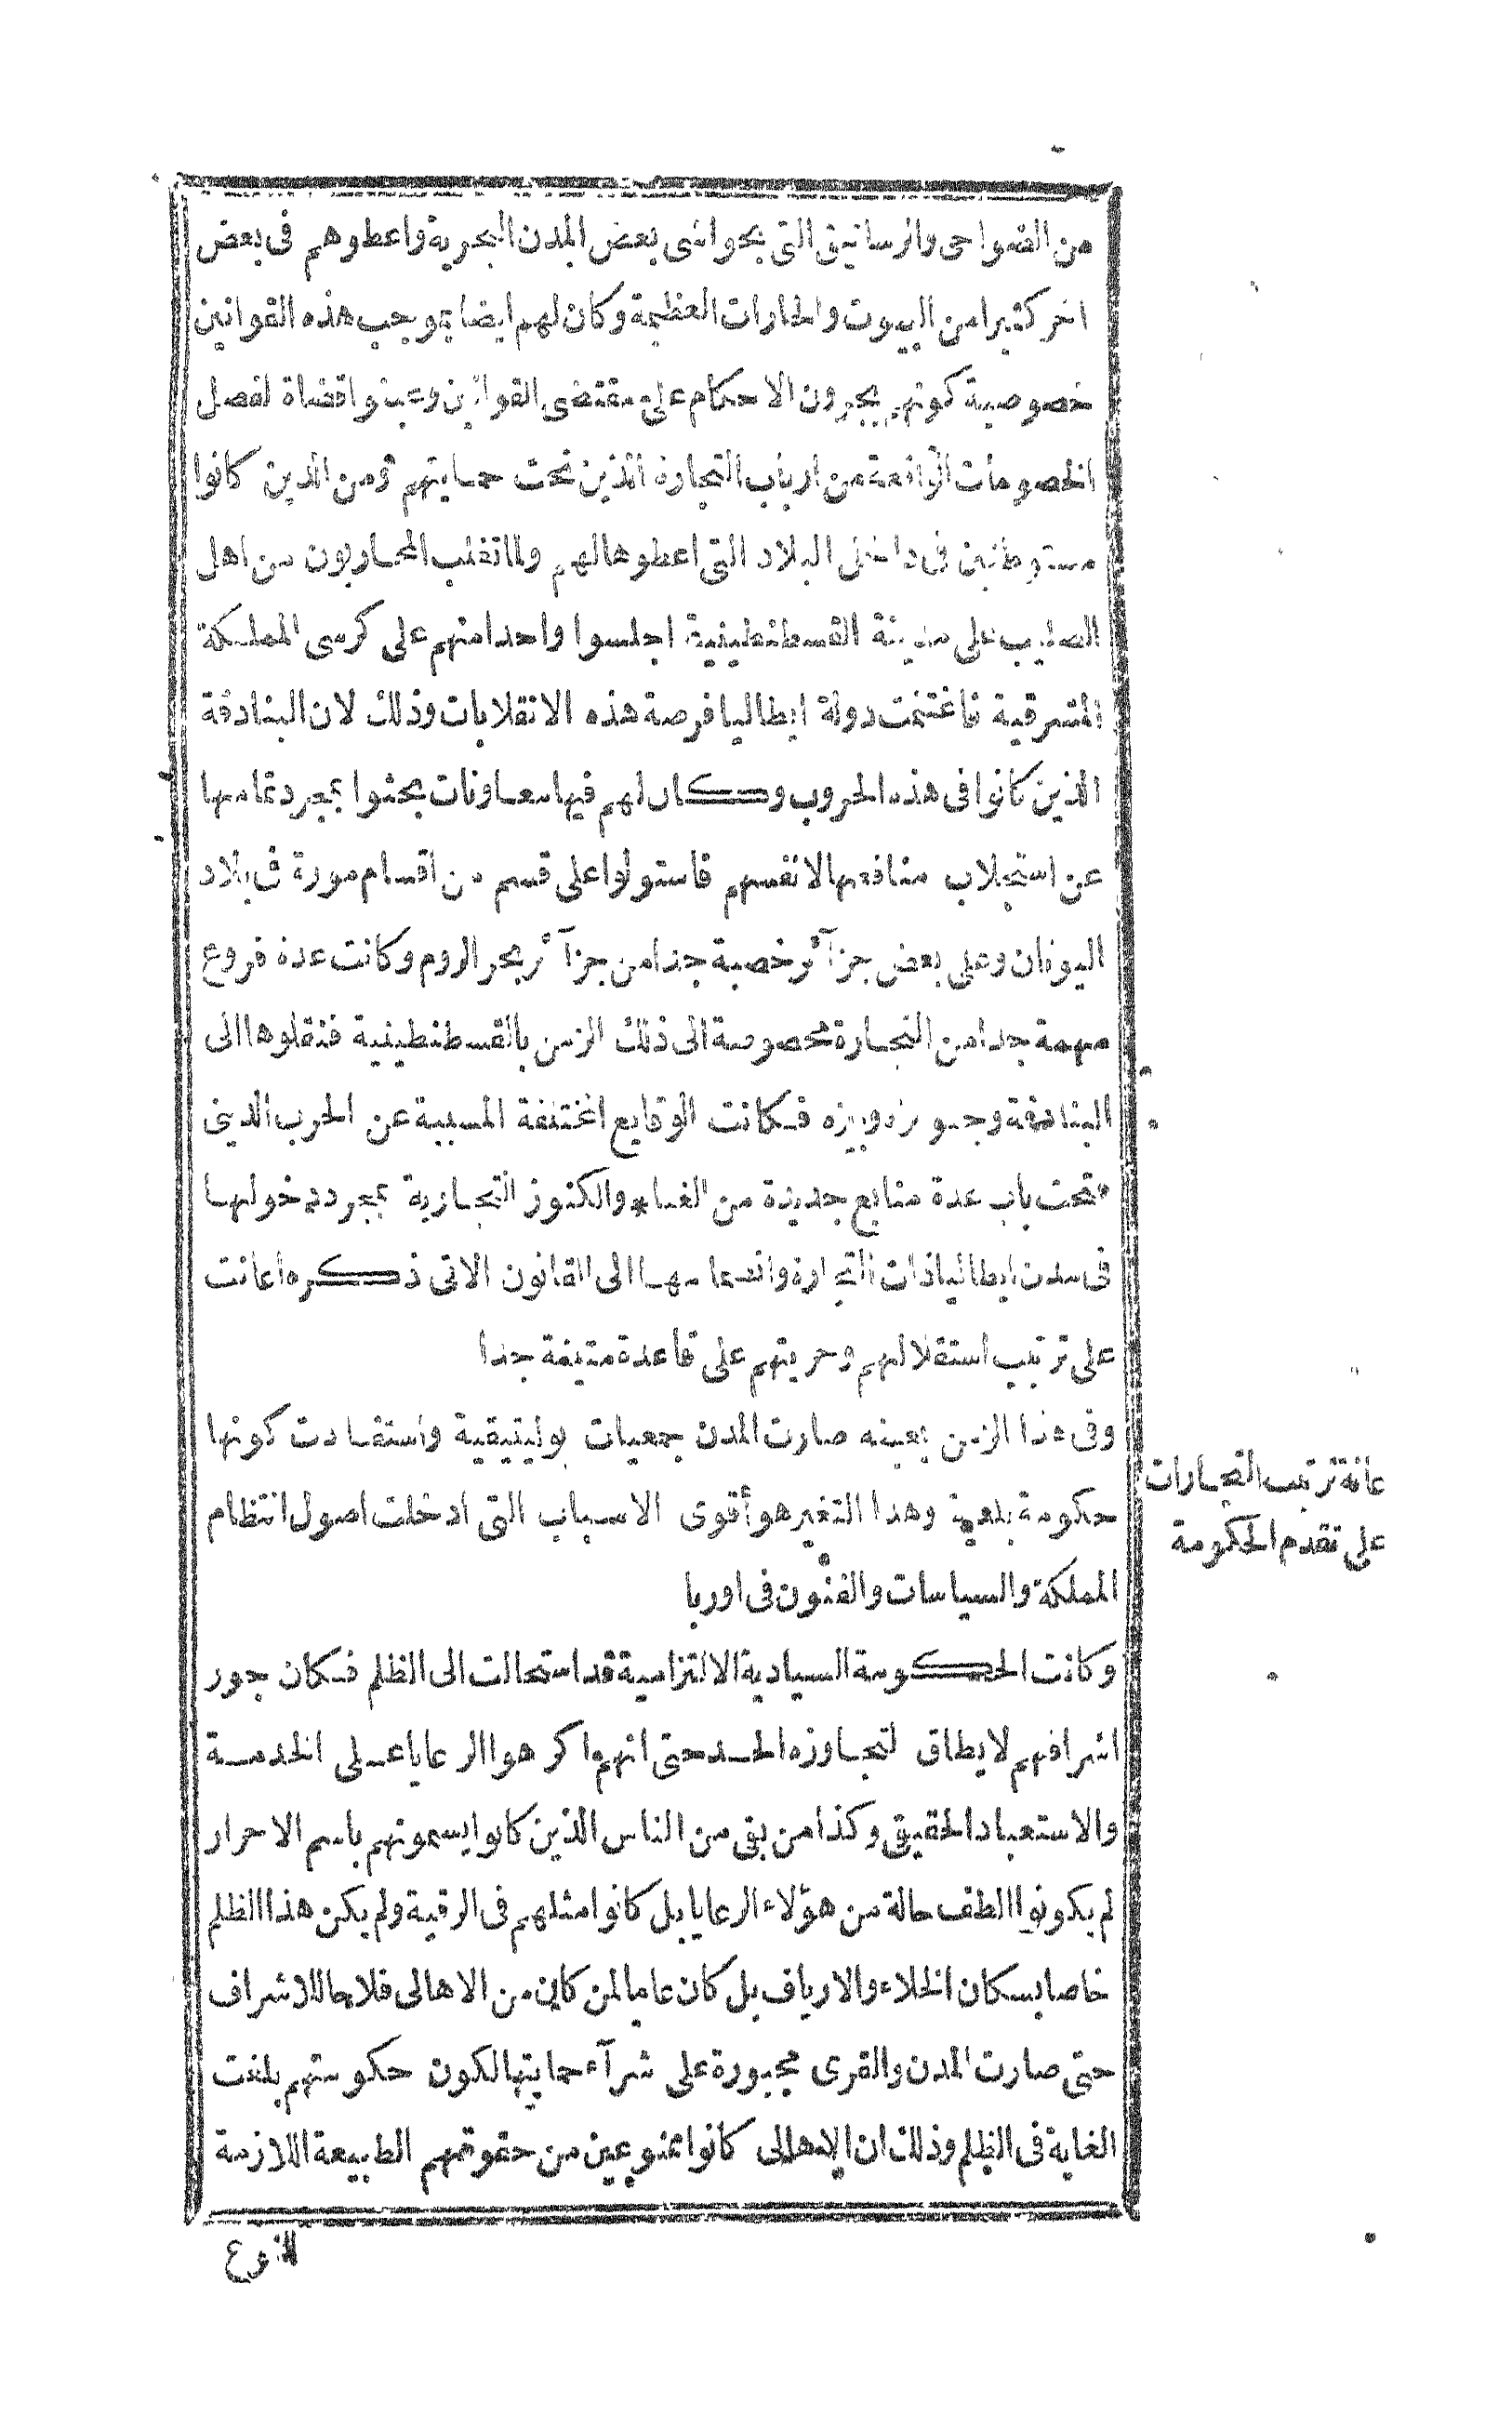 من الضواحى والرساتيق التى بحواشى بعض المدن البحرية واعطوهم فى بعض
اخر كثيرا من البيوت والحارات العظيمة وكان لهم ايضا بموجب هذه القوانين
خصوصية كونهم يجرون الاحكام على مقتضى القوانين وعينوا قضاة لفصل
الخصومات الواقعة من ارباب التجارة الذين تحت حمايتهم ومن الذين كانوا
مستوطنين فى داخل البلاد التى اعطوها لهم ولما تغلب المحاربون من اهل
الصليب على مدينة القسطنطينية اجلسوا واحدا منهم على كرسى المملكة
المشرقية فاغتنمت دولة ايطاليا فرصة هذه الانقلابات وذلك لان البنادقة
الذين كانوا فى هذه الحروب وكان لهم فيها معاونات بحثوا بمجرد تمامها
عن استجلاب منافعها لانفسهم فاستولوا على قسم من اقسام مورة فى بلاد
اليونان وعلى بعض جزآئر خصبة جدا من جزآئر بحر الروم وكانت عدة فروع
مهمة جدا من التجارة مخصوصة الى ذلك الزمن بالقسطنطينية فنقلوها الى
البنادقة وجنو زوبيزه فكانت الوقايع المختلفة المسببة عن الحرب الدينى
فتحت باب عدة منابع جديدة من الغناء والكنوز التجارية بمجرد دخولها
فى مدن ايطاليا ذات التجارة وانضمامها الى القانون الاتى ذكره أعانت
على ترتيب استقلالهم وحريتهم على قاعدة متينة جدا
وفى هذا الزمن بعينه صارت المدن جمعيات بوليتيقية واستفادت كونها
حكومة بلدية وهذا التغير هو أقوى الاسباب التى ادخلت اصول انتظام
المملكة والسياسات والفنون فى اوربا
وكانت الحكومة السيادية الالتزامية قد استحالت الى الظلم فكان جور
اشرافهم لا يطاق لتجاوزه الحد حتى انهم اكرهوا الرعايا على الخدمة
والاستعباد الحقيقى وكذا من بقى من الناس الذين كانوا يسمونهم باسم الاحرار
لم يكونوا الطف حالة من هؤلاء الرعايا بل كانوا مثلهم فى الرقية ولم يكن هذا الظلم
خاصا بسكان الخلاء والارياف بل كان عاما لمن كان من الاهالى فلاحا للاشراف
حتى صارت المدن والقرى مجبورة على شرآء حمايتها لكون حكومتهم بلغت
الغاية فى الظلم وذلك ان الاهالى كانوا ممنوعين من حقوقهم الطبيعة اللازمة
للنوع
عانة ترتيب التجارات
على تقدم الحكومة